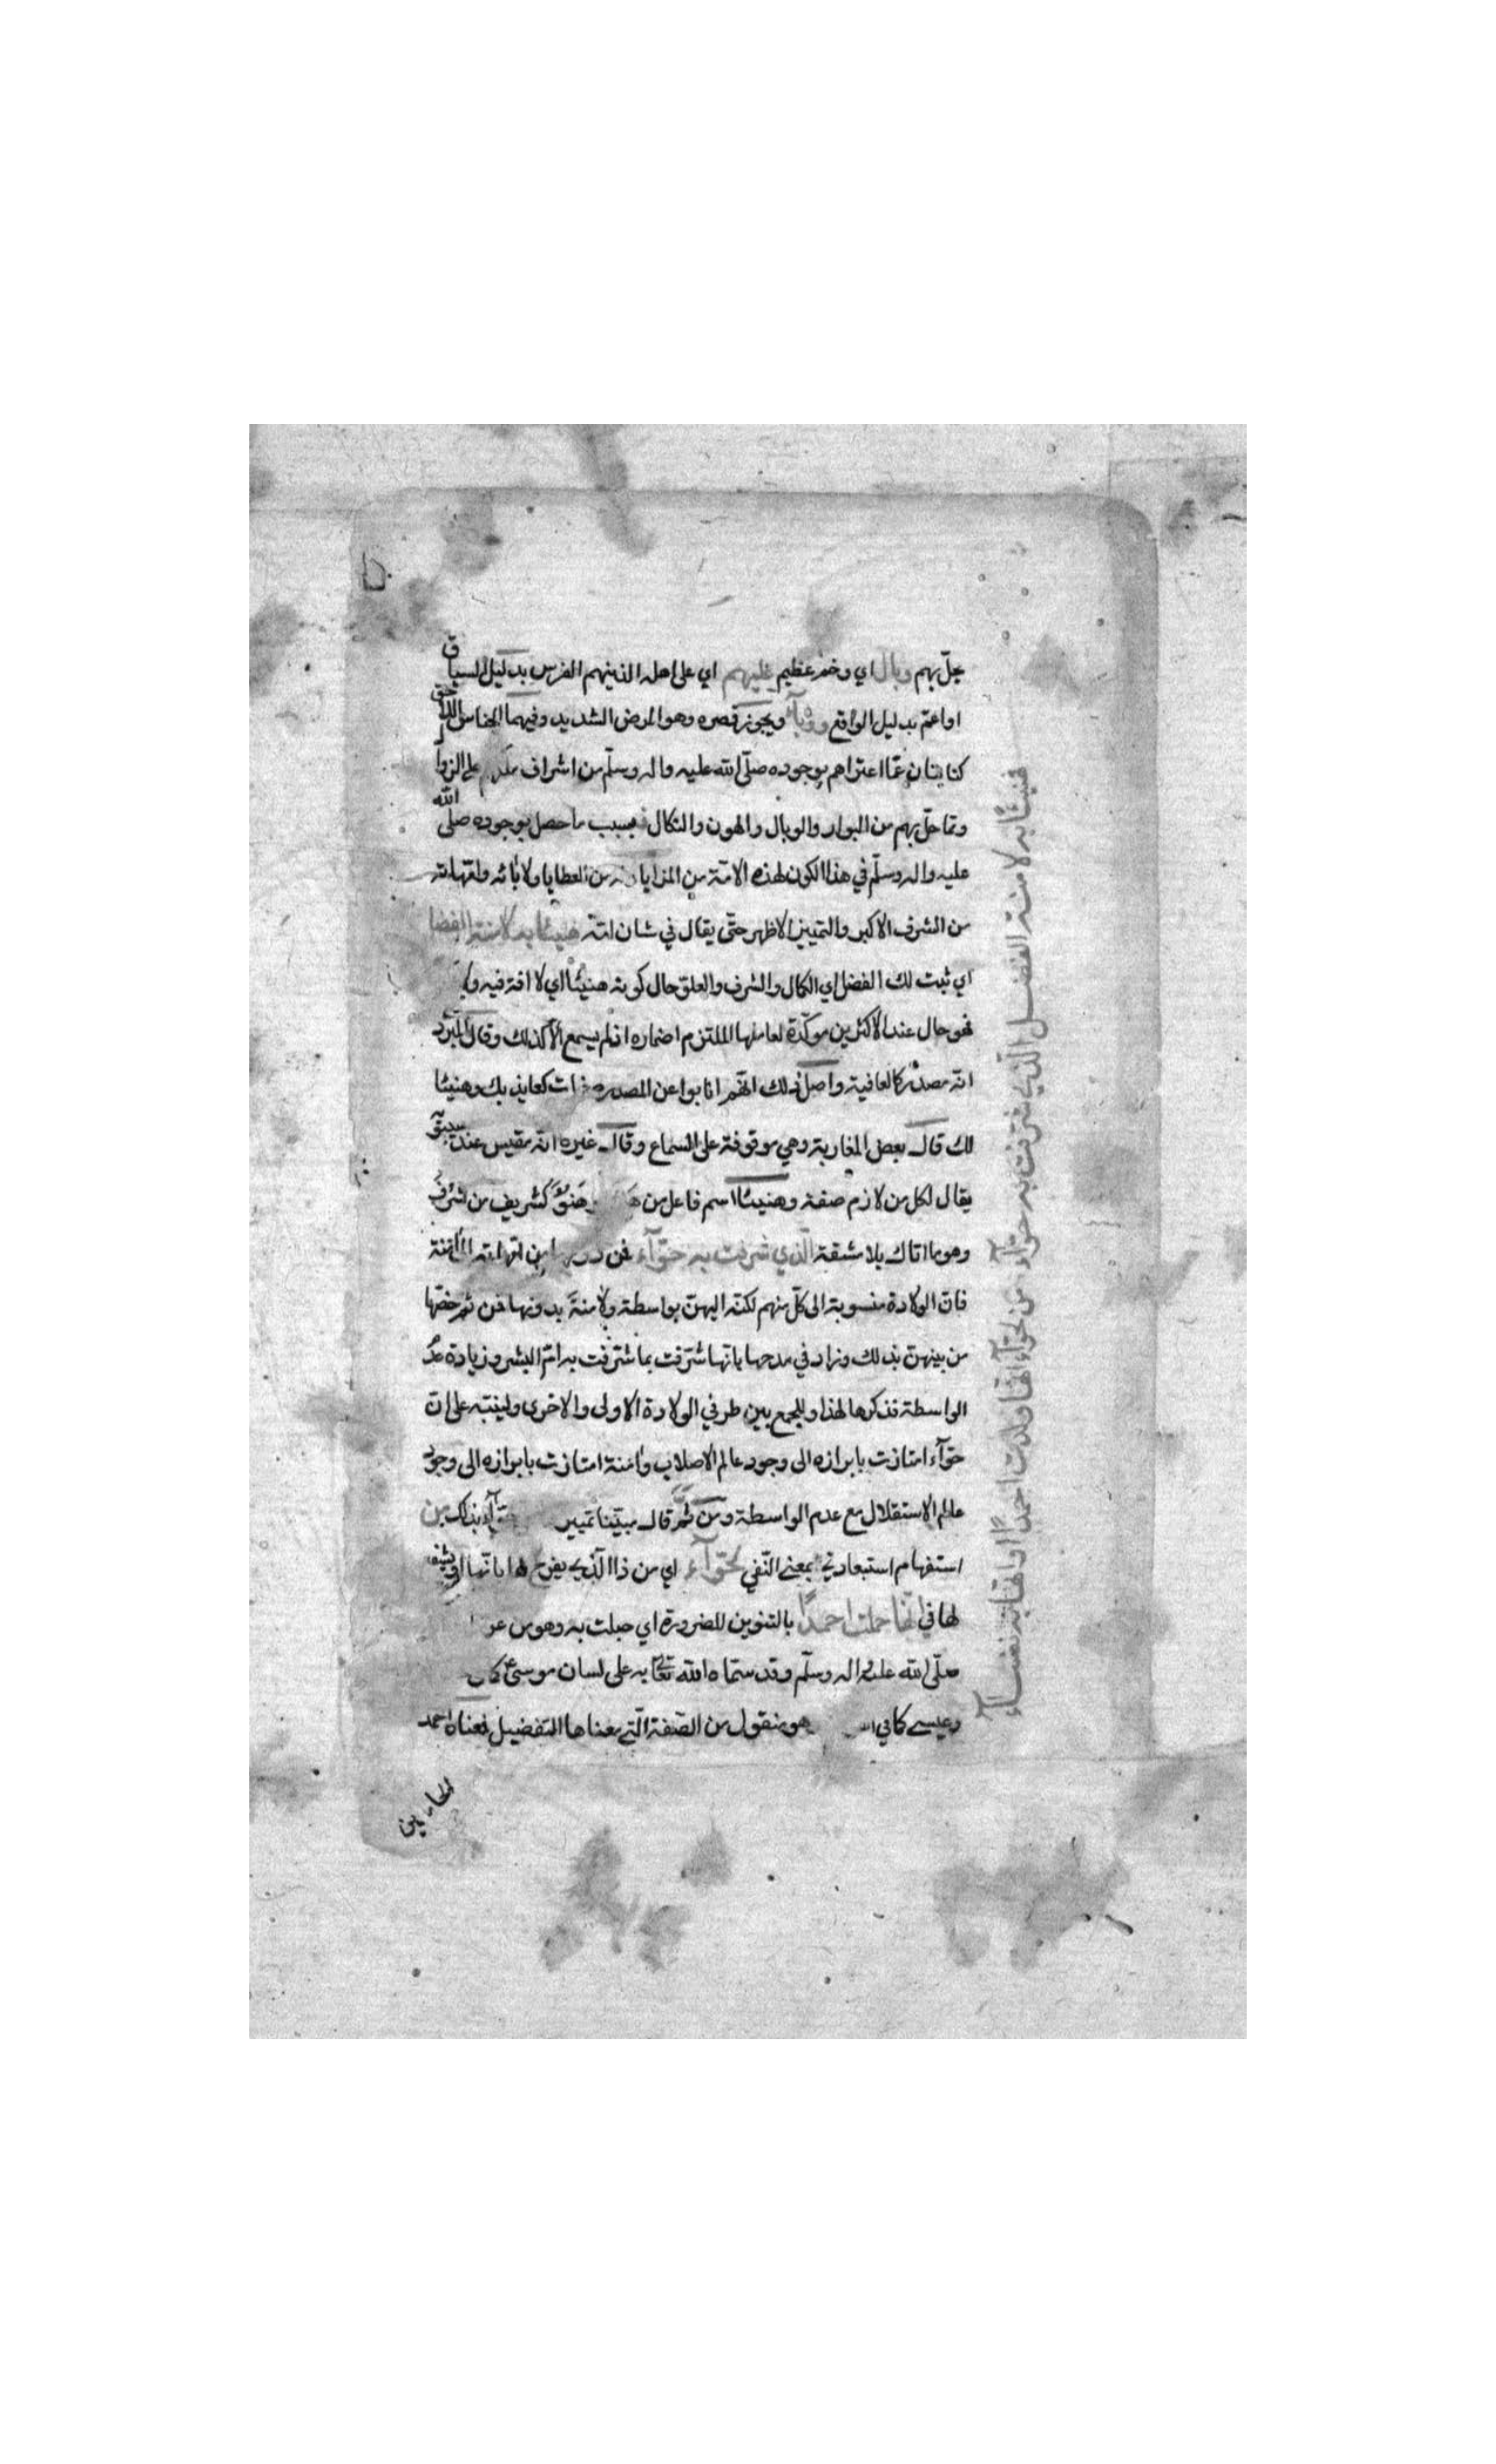 حلّ بهم وبال اي وخم عظيم عليهم اي على اهله الذينهم الفرس بدليل السياق
او اعم بدليل الواقع ووبآء ويجوز قصره وهو المرض الشديد وفيهما الجناس اللاحق
كنايتان عمّا اعتراهم بوجوده صلّى الله عليه واله وسلّم من اشراف على الزوا
وتما حلّ بهم من البوار والوبال والهون والنكال فبسبب ما حصل بوجوده صلى الله
عليه واله وسلّم في هذا الكون لهذه الامّة من المزايا من العطايا ولآبائه وامّهاته
من الشرف الاكبر والتمييز الاظهر حتّى يقال في شان امّه هنيئا به لامنة الفضل
اي ثبت لك الفضل اي الكمال والشرف والعلوّ حال كونه هنيئا اي لا افة فيه
فهو حال عند الاكثرين موكّدة لعاملها الملتزم اضماره اذ لم يسمع الّا كذلك وقال المبرّد
انّه مصدر كالعافية واصل ذلك انّهم انابوا عن المصدر كعايذ بك وهنيئا
لك قال بعض المغاربة وهي موقوفة على السماع وقال غيره انّه مقيس عند سيبويه
يقال لكل من لازم صفة وهنيئا اسم فاعل من هَنُؤَ كشريف من شرف
وهو ما اتاك بلا مشقة الّذي شرفت به حوّآء من امّهاته الى امنة
فانّ الولادة منسوبة الى كلّ منهم لكنّه اليهنّ بواسطة ولامنة بدونها فمن ثم خصّها
من بينهنّ بذلك وزاد في مدحها بانّها شرّفت بما شرّفت به امّ البشر وزيادة عدم
الواسطة فذكرها لهذا وللجمع بين طرفي الولادة الاولى والاخرى ولينبّه على انّ
حوّآء امتازت بابرازه الى وجود عالم الاصلاب وامنة امتازت بابرازه الى وجود
عالم الاستقلال مع عدم الواسطة ومن ثمّ قال مبيّنا تميز بذلك من
استفهام استبعاديّ بمعنى النّفي لحوّآء اي من ذا الّذي يفرح لها بانّها
لها في انّها حملت احمدًا بالتنوين للضرورة اي حبلت به وهو من
صلّى الله عليه واله وسلّم وقد سمّاه الله تعالى به على لسان موسى كما
وعيسى كما في هو منقول من الصّفة الّتي معناها التفضيل فمعناه احمد
الحامدين
فهنيئًا به لامنة الفضل الّذي شرّفت به حوّآء
من لحوّآء انّها ولدت احمدًا او انّها به نفسآء